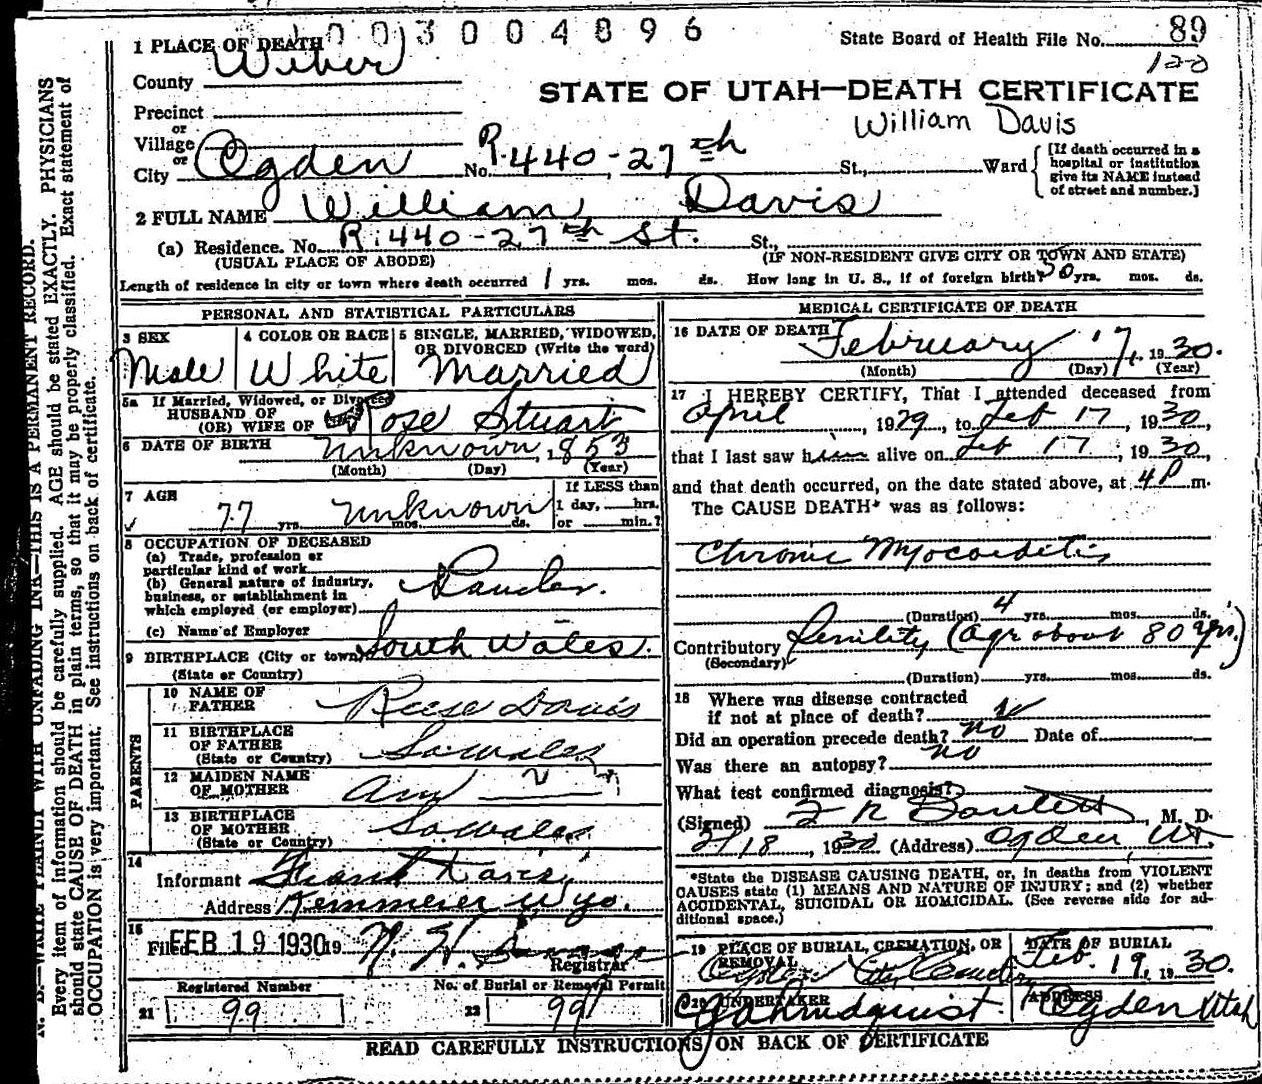 003004896
State Board of Health File No. 89
120
1 PLACE OF DEATH
County Weber
STATE OF UTAH—DEATH CERTIFICATE
Precinct
William Davis
or
Village
or
City Ogden No. R. 440-27th St., Ward
[If death occurred in a hospital or institution give its NAME instead of street and number.]
2 FULL NAME William Davis
(a) Residence. No. R. 440-27th St. St.,
(USUAL PLACE OF ABODE) (IF NON-RESIDENT GIVE CITY OR TOWN AND STATE)
Length of residence in city or town where death occurred 1 yrs. mos. ds. How long in U. S., if of foreign birth? 50 yrs. mos. ds.
PERSONAL AND STATISTICAL PARTICULARS
3 SEX Male
4 COLOR OR RACE White
5 SINGLE, MARRIED, WIDOWED, OR DIVORCED (Write the word) Married
5a If Married, Widowed, or Divorced
HUSBAND OF
(OR) WIFE OF Rose Stuart
6 DATE OF BIRTH Unknown, 1853
(Month) (Day) (Year)
7 AGE 77 yrs. Unknown mos. ds.
If LESS than 1 day, hrs. or min.?
8 OCCUPATION OF DECEASED
(a) Trade, profession or particular kind of work
(b) General nature of industry, business, or establishment in which employed (or employer)
(c) Name of Employer
9 BIRTHPLACE (City or town) South Wales.
(State or Country)
PARENTS
10 NAME OF FATHER Reese Davis
11 BIRTHPLACE OF FATHER (State or Country) So. Wales
12 MAIDEN NAME OF MOTHER Ann
13 BIRTHPLACE OF MOTHER (State or Country) So. Wales.
14 Informant Frank Davis
Address Kemmerer Wyo.
15 Filed FEB 19 1930 19
Registrar
Registered Number
21 99
No. of Burial or Removal Permit
22 99
MEDICAL CERTIFICATE OF DEATH
16 DATE OF DEATH February 17, 1930.
(Month) (Day) (Year)
17 I HEREBY CERTIFY, That I attended deceased from
April, 1929, to Feb 17, 1930,
that I last saw him alive on Feb 17, 1930,
and that death occurred, on the date stated above, at 4 P m.
The CAUSE DEATH* was as follows:
Chronic Myocarditis
(Duration) 4 yrs. mos. ds.
Contributory Senility (Age about 80 yrs.)
(Secondary)
(Duration) yrs. mos. ds.
18 Where was disease contracted
if not at place of death?
Did an operation precede death? no Date of
Was there an autopsy? no
What test confirmed diagnosis?
(Signed) M. D.
2/18, 1930 (Address) Ogden, Ut.
*State the DISEASE CAUSING DEATH, or, in deaths from VIOLENT
CAUSES state (1) MEANS AND NATURE OF INJURY; and (2) whether
ACCIDENTAL, SUICIDAL OR HOMICIDAL. (See reverse side for additional space.)
19 PLACE OF BURIAL, CREMATION, OR REMOVAL Ogden City
DATE OF BURIAL Feb. 19, 1930.
20 UNDERTAKER Lindquist.
ADDRESS Ogden Utah
READ CAREFULLY INSTRUCTIONS ON BACK OF CERTIFICATE
N. B.—WRITE PLAINLY WITH UNFADING INK—THIS IS A PERMANENT RECORD.
Every item of information should be carefully supplied. AGE should be stated EXACTLY. PHYSICIANS
should state CAUSE OF DEATH in plain terms, so that it may be properly classified. Exact statement of
OCCUPATION is very important. See instructions on back of certificate.